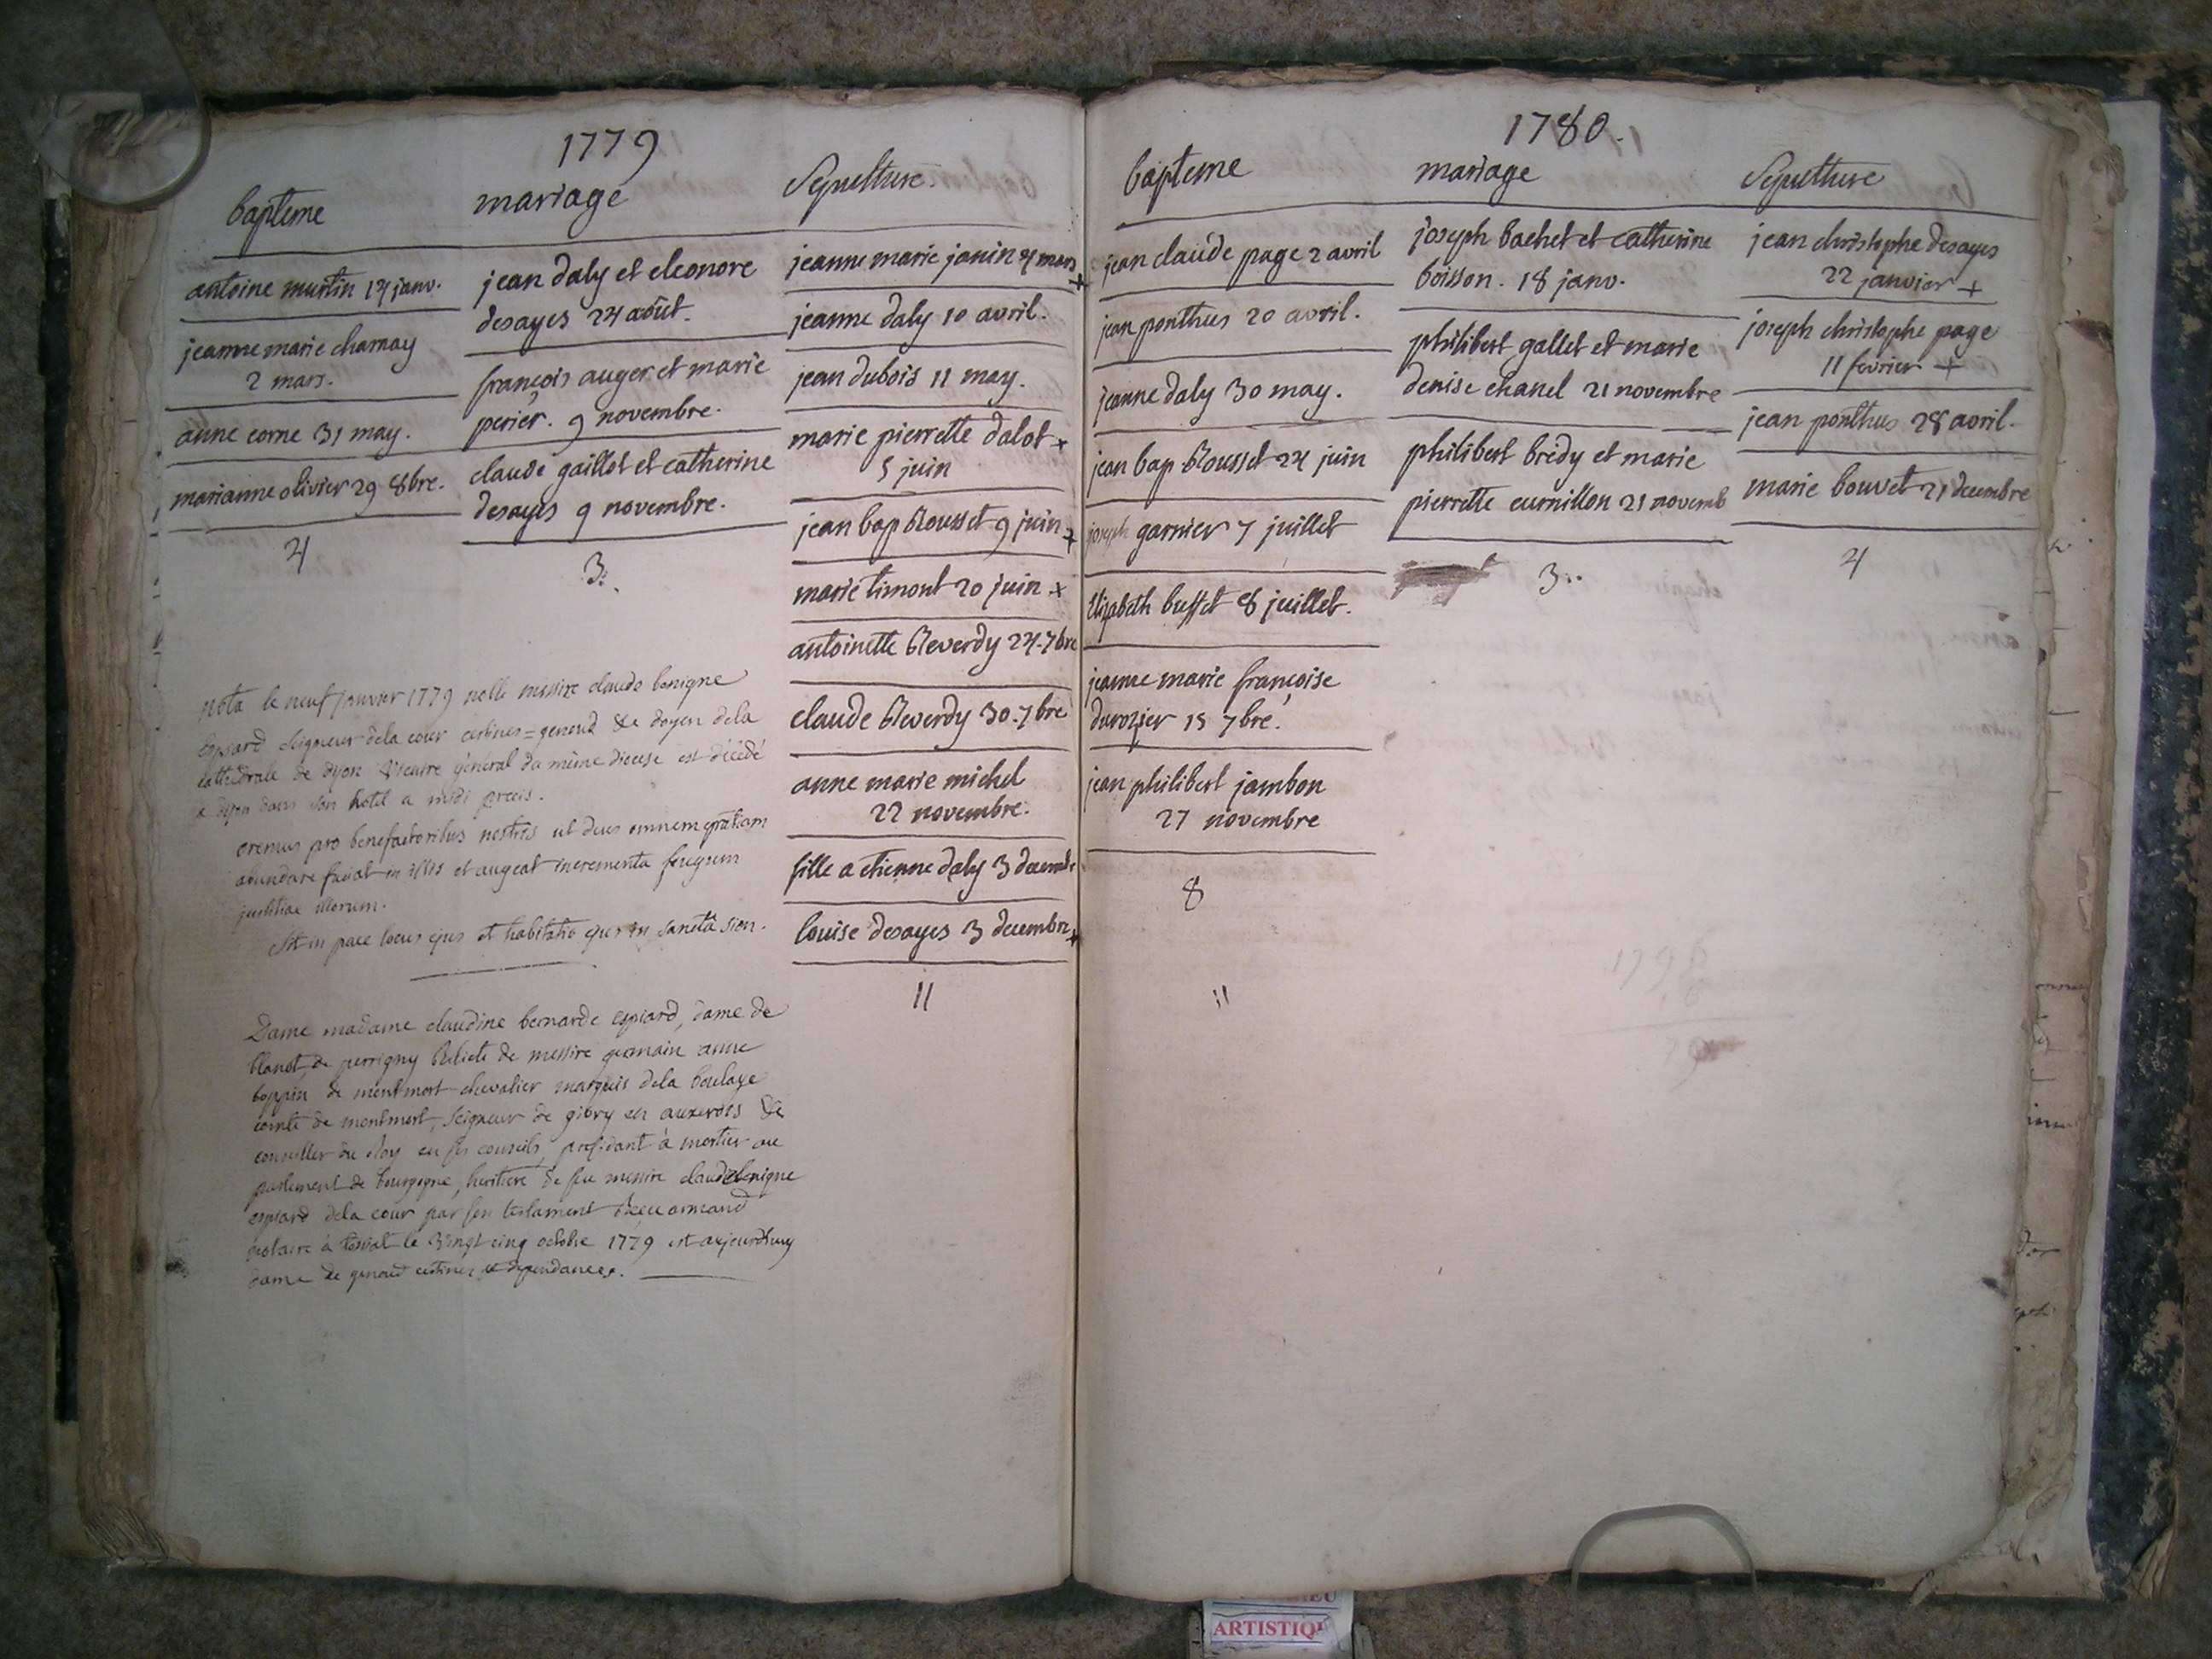 1779
bapteme
antoine martin 14 janv.
jeanne marie charnay
2 mars.
anne corne 31 may.
marianne olivier 29 8bre.
4
mariage
jean daly et eleonore
desayes 24 août.
françois auger et marie
perier. 9 novembre.
claude gaillot et catherine
desayes 9 novembre.
3.
Sepulture.
jeanne marie janin 4 mars +
jeanne daly 10 avril.
jean dubois 11 may.
marie pierrette dalot +
5 juin
jean bap Rousset 9 juin +
marie timont 20 juin +
antoinette Reverdy 24. 7bre
claude Reverdy 30. 7bre
anne marie michel
22 novembre.
fille a etienne daly 3 decembre
louise desayes 3 decembre +
11
nota le neuf janvier 1779 messire claude benigne
Espiard Seigneur dela cour cortines = genoud &c doyen dela
cathedrale de dijon Vicaire général du même diocese est décédé
a dijon dans son hotel a midi precis.
oremus pro benefactoribus nostris ut deus omnem gratiam
abundare faciat in illis et augeat incrementa frugum
justitiae illorum.
sit in pace locus ejus et habitatio ejus in sancta sion.
Dame madame claudine bernarde espiard, dame de
blanot, de perrigny Relicte de messire germain anne
loppin de montmort chevalier marquis dela boulaye
comte de montmort, seigneur de gibry en auxerois &c
conseiller du Roy en ses conseils, president à mortier au
parlement de bourgogne, heritiere de feu messire claude benigne
espiard dela cour par son testament Receu armand
notaire à le vingt cinq octobre 1779 est aujourdhuy
dame de genoud cortines et dependances.
1780.
bapteme
jean claude page 2 avril
jean ponthus 20 avril.
jeanne daly 30 may.
jean bap Rousset 24 juin
joseph garnier 7 juillet
Elizabeth buffet 8 juillet.
jeanne marie françoise
durozier 15 7bre.
jean philibert jambon
27 novembre
8
11
mariage
joseph bachet et catherine
boisson. 18 janv.
philibert gallet et marie
denise chanel 21 novembre
philibert bredy et marie
pierrette curnillon 21 novemb
3..
Sepulture
jean christophe desayes
22 janvier +
joseph christophe page
11 fevrier +
jean ponthus 28 avril.
marie bouvet 21 decembre
4
ARTISTIQ